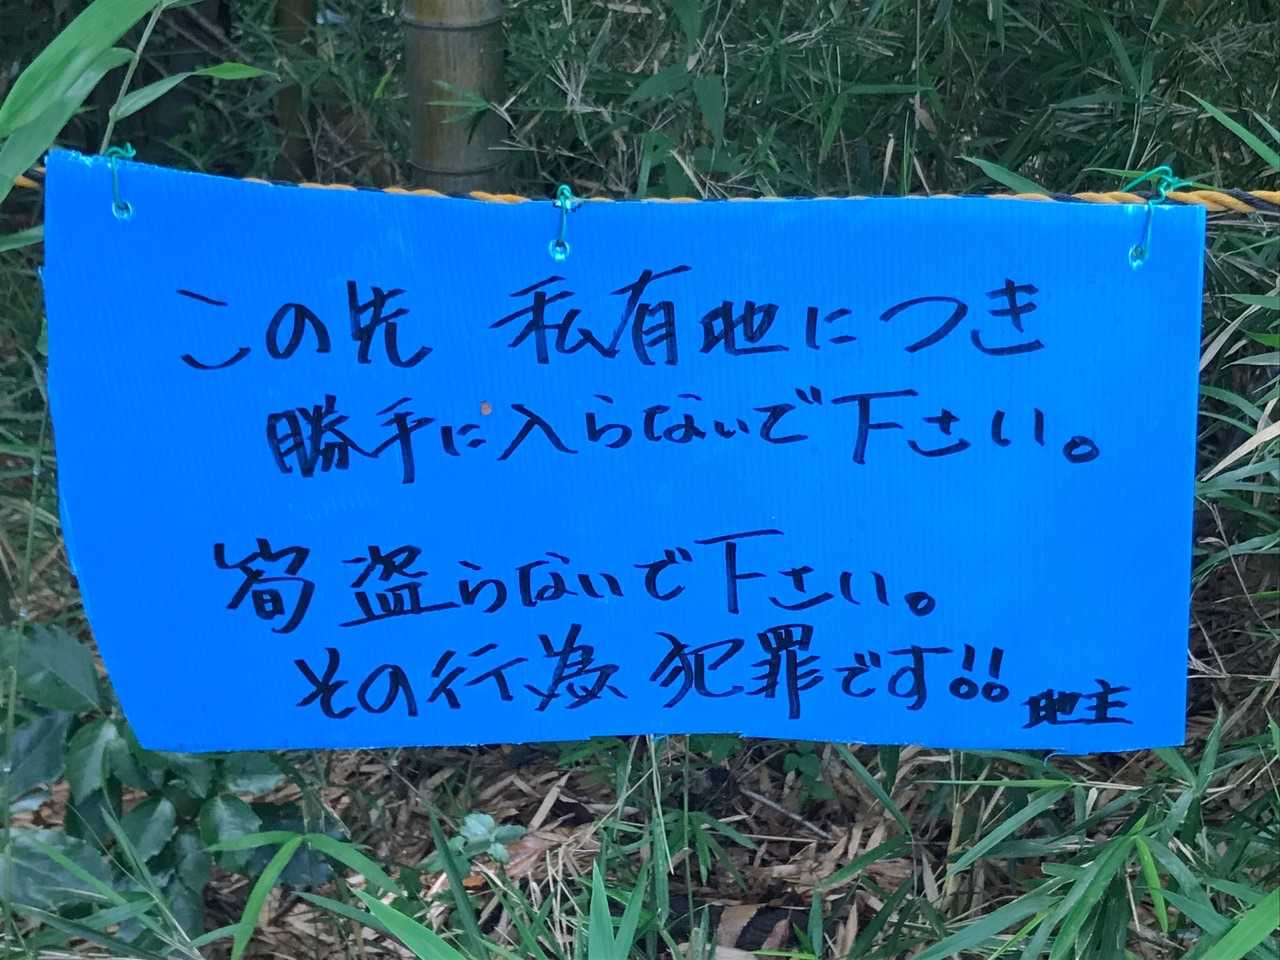 この先 私有地につき
勝手に入らないで下さい。
筍盗らないで下さい。
その行為 犯罪です!!
地主